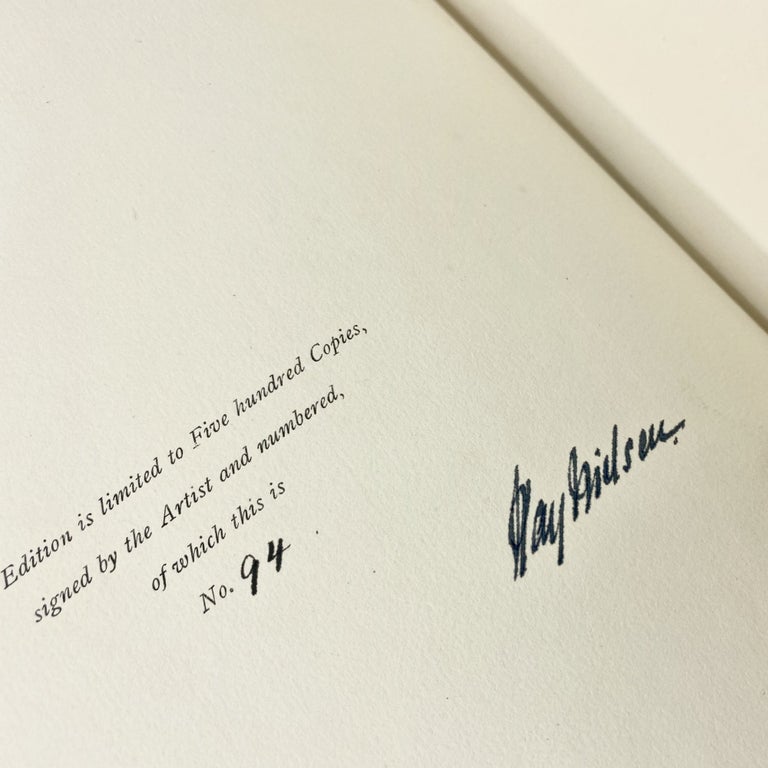 Edition is limited to Five hundred Copies,
signed by the Artist and numbered,
of which this is
No. 94
Kay Nielsen.